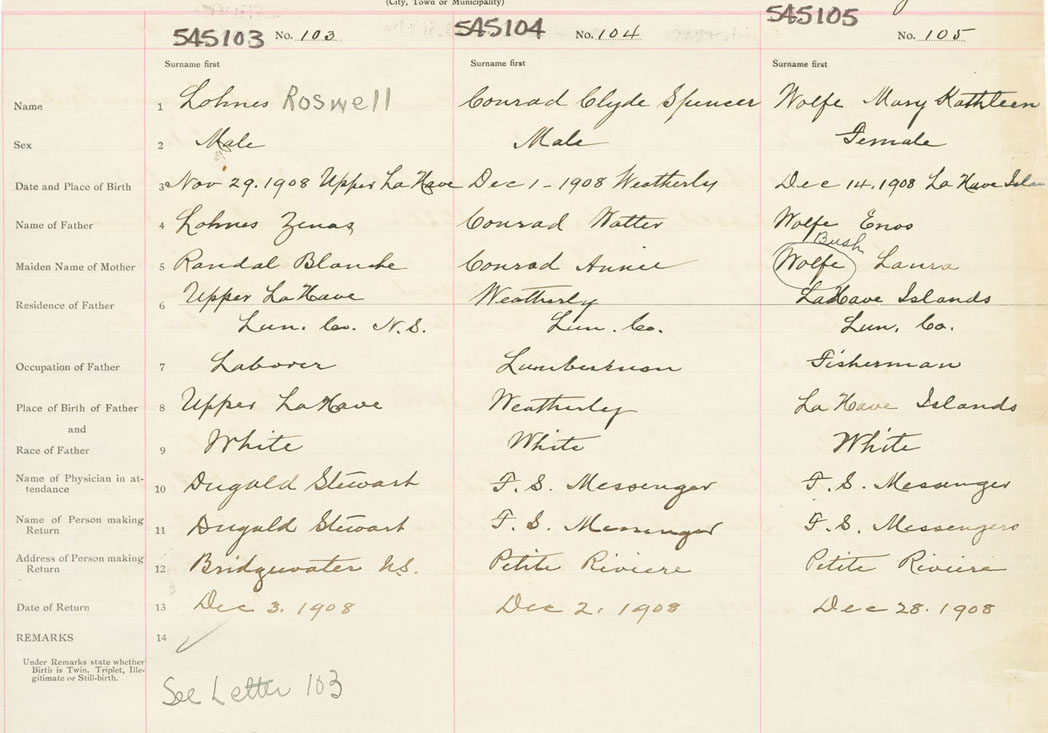 (City, Town or Municipality)
545103 No. 103 545104 No. 104 545105 No. 105
Surname first Surname first Surname first
Name 1 Lohnes Roswell Conrad Clyde Spencer Wolfe Mary Kathleen
Sex 2 Male Male Female
Date and Place of Birth 3 Nov 29. 1908 Upper LaHave Dec 1 - 1908 Weatherly Dec 14, 1908 La Have Islan
Name of Father 4 Lohnes Zenas Conrad Watter Wolfe Enos
Bush
Maiden Name of Mother 5 Randal Blanche Conrad Annie Wolfe Laura
Residence of Father 6 Upper LaHave Weatherly LaHave Islands
Lun. Co. N.S. Lun. Co. Lun. Co.
Occupation of Father 7 Laborer Lumberman Fisherman
Place of Birth of Father 8 Upper LaHave Weatherly La Have Islands
and
Race of Father 9 White White White
Name of Physician in at-
tendance 10 Dugald Stewart F. S. Messenger F. S. Messenger
Name of Person making
Return 11 Dugald Stewart F. S. Messenger F. S. Messengers
Address of Person making
Return 12 Bridgewater N.S. Petite Riviere Petite Riviere
Date of Return 13 Dec 3. 1908 Dec 2, 1908 Dec 28. 1908
REMARKS 14
Under Remarks state whether
Birth is Twin, Triplet, Ille-
gitimate or Still-birth.
See Letter 103